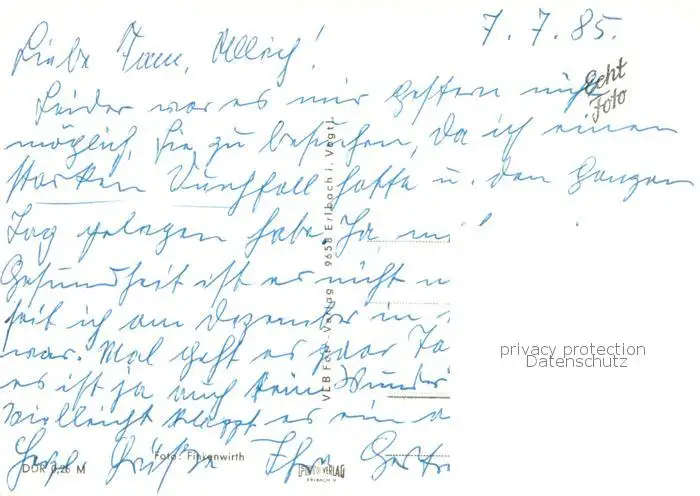 7. 7. 85.
Liebe Frau Ullrich!
Echt Foto
Leider war es mir gestern nicht
möglich, Sie zu besuchen, da ich einen
starken Durchfall hatte u. den ganzen
Tag gelegen habe. Ja m
Gesundheit ist es nicht
seit ich am Dezember in
war. Mal geht es paar Ta
es ist ja auch kein Wunder
Vielleicht klappt es ein a
Herzl. Grüße Ihre Gertr
VEB Foto-Verlag 9658 Erlbach i. Vogtl.
Foto: Finkenwirth
DDR 0,25 M
FOTO VERLAG
ERLBACH V
privacy protection
Datenschutz